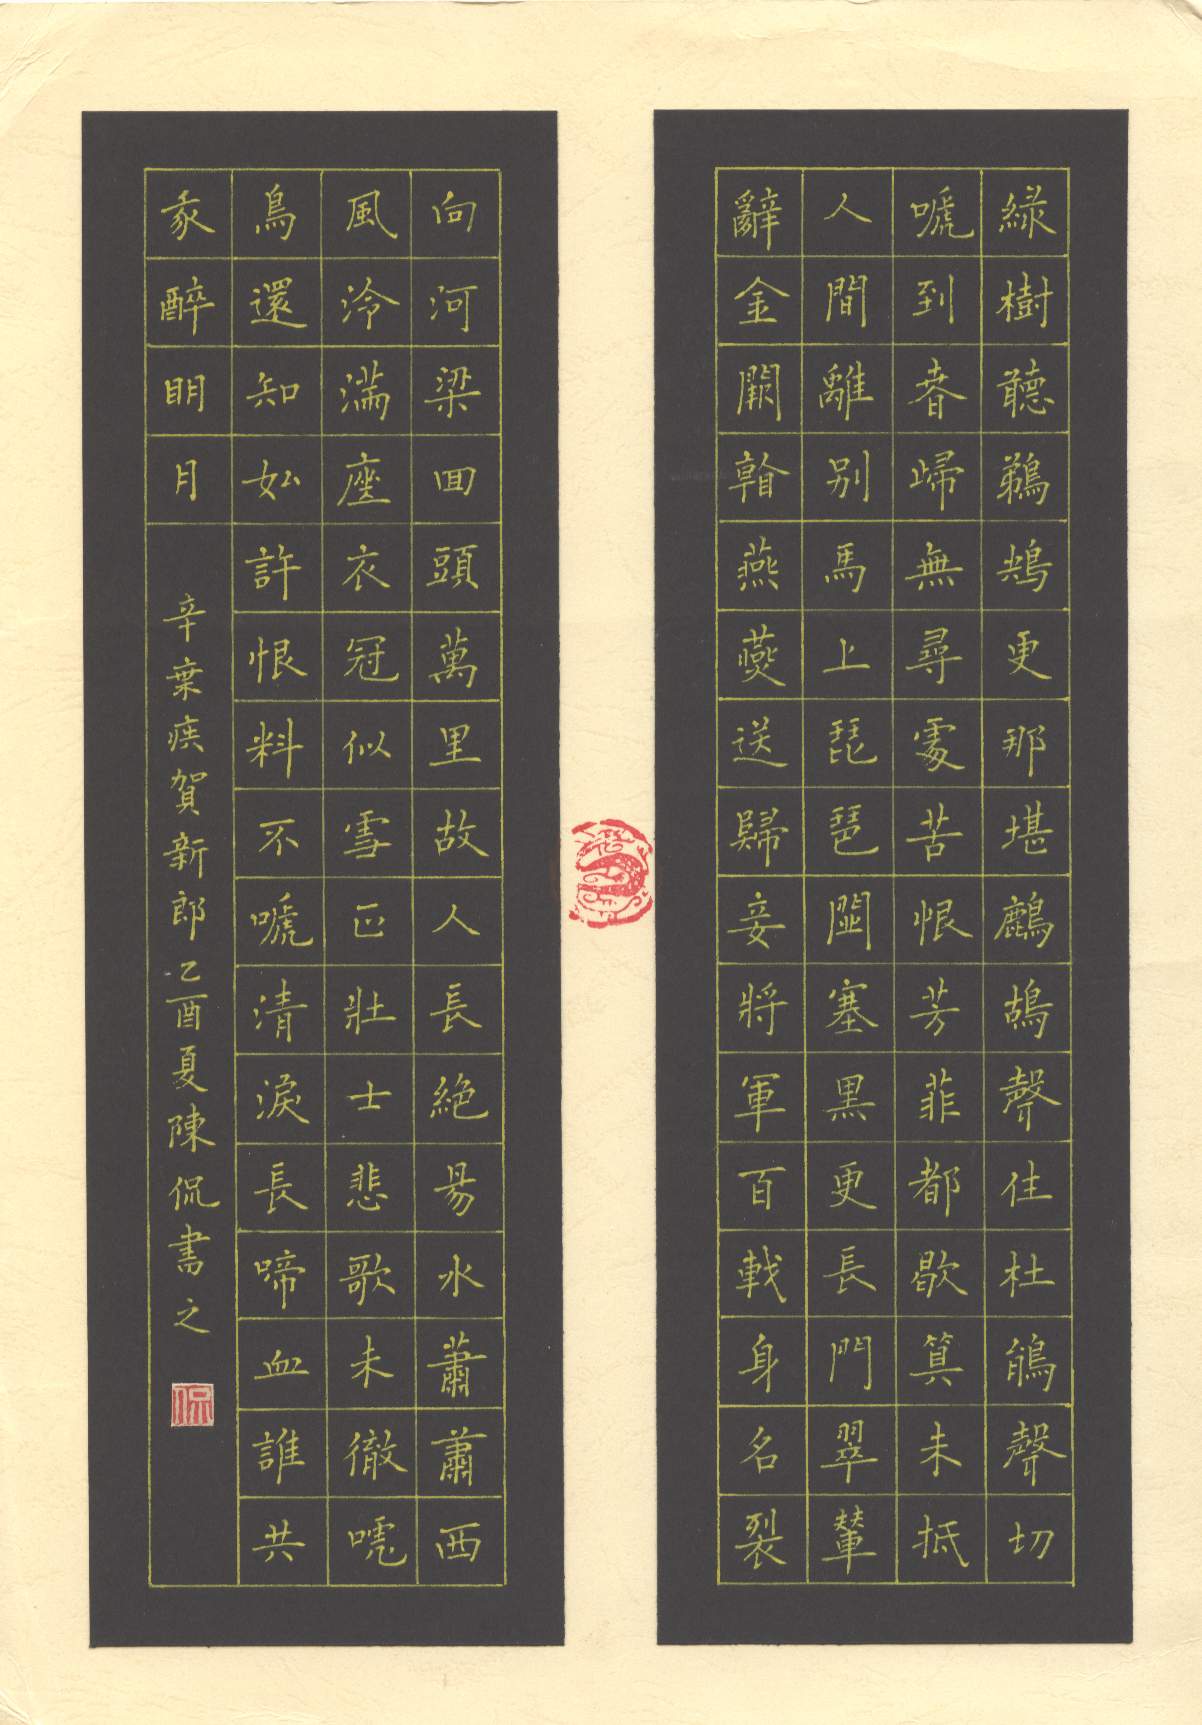 綠樹聽鵜鴂更那堪鷓鴣聲住杜鵑聲切
嗁到春歸無尋處苦恨芳菲都歇算未抵
人間離別馬上琵琶關塞黑更長門翠輦
辭金闕看燕燕送歸妾將軍百戰身名裂
向河梁回頭萬里故人長絕易水蕭蕭西
風冷滿座衣冠似雪正壯士悲歌未徹嗁
鳥還知如許恨料不嗁清淚長啼血誰共
我醉明月
辛棄疾賀新郎乙酉夏陳侃書之
侃